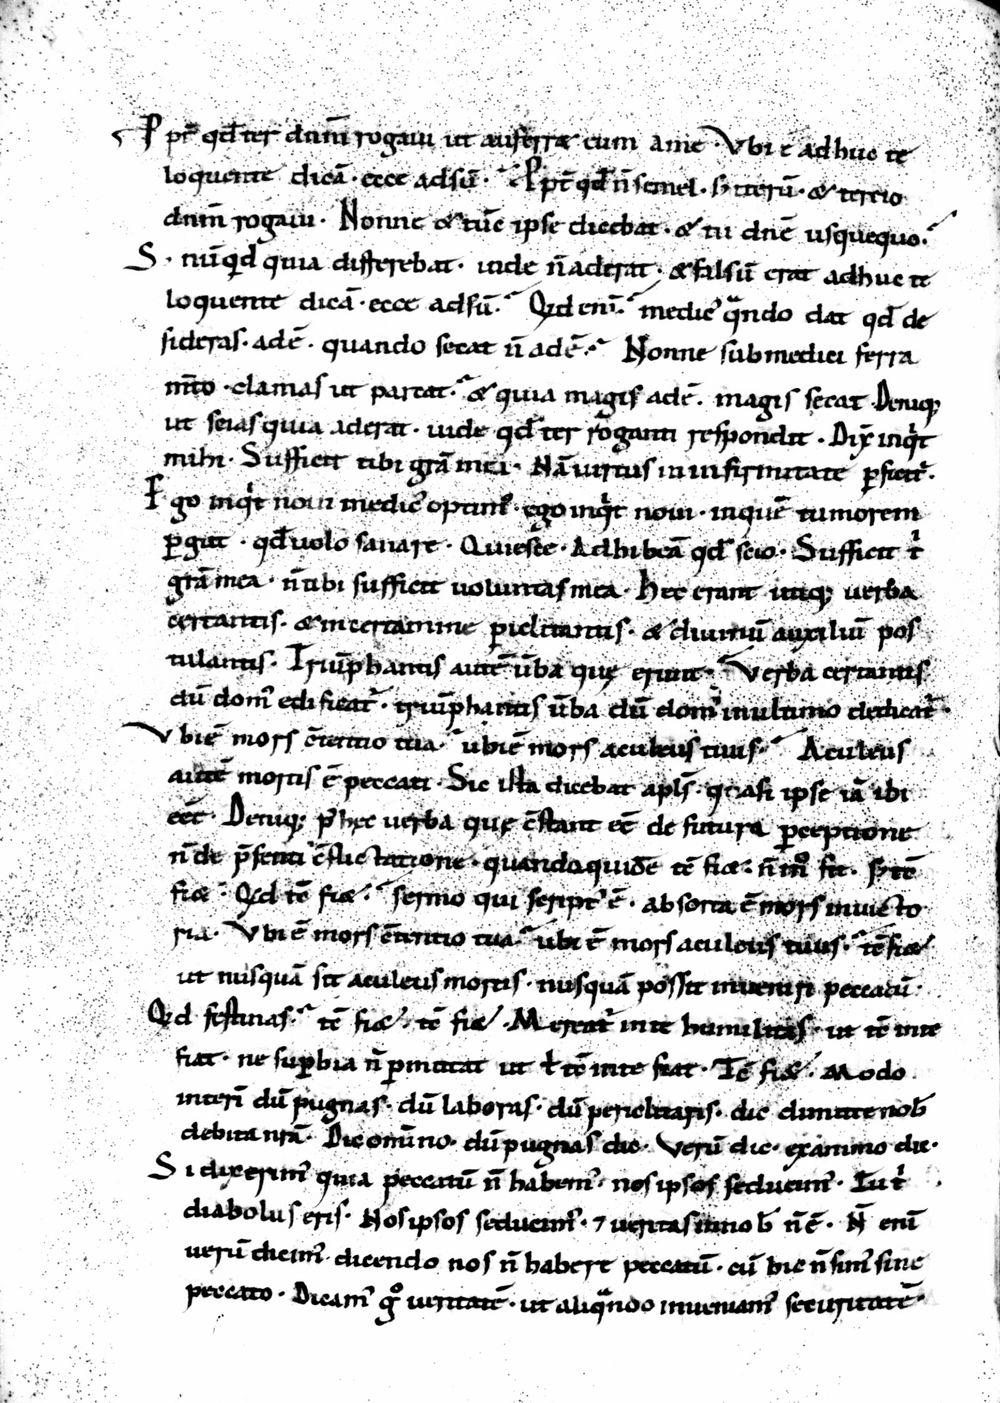 Ppt̄ qd̄ ter dn̄m rogaui ut auferr& eum ame. Vbi ē adhuc te
loquente dicā. ecce adsū. Ppt̄ qd̄ n̄ semel. s; iterū. & tercio
dn̄m rogaui. Nonne & tūc ipse dicebat. & tu dn̄e usquequo.
S. nūqd quia differebat. inde n̄ aderat. & falsū erat adhuc te
loquente dicā. ecce adsū. Qd eni͂. medic' qͣndo dat qd̄ de
sideras. adē. quando secat n̄ adē. Nonne sub medici ferra
m̄to. clamas ut parcat. & quia magis adē. magis secat. Deniq;
ut scias quia aderat. uide qd̄ ter roganti respondit. Dix̄ inqͥt
mihi. Sufficit tibi grā mei. Nā uirtus in infirmitate ꝑficit᷑.
Ego inqͥt noui medic' optim'. ego inqͥt noui. in quē tumorem
ꝑgat. qd̄ uolo sanare. Quiesce. Adhibeā qd̄ scio. Sufficit tͥ
grā mea. n̄ tibi sufficit uoluntas mea. Hec erant utiq; uerba
certantis. & in certamine ꝑiclitantis. & diuinū auxiliū pos
tulantis. Triūphantis autē ūba quę erunt. Verba certantis
dū dom' edificat᷑. triūphantis ūba dū dom' in ultimo dedicat᷑.
Vbi ē mors c̄tentio tua. ubi ē mors aculeus tuus. Aculeus
autē mortis ē peccati. Sic ista dicebat apl̄s. quasi ipse iā ibi
eēt. Deniq; p' hec uerba quę c̄stant eē de futura ꝑceptione
n̄ de p̄senti c̄flictatione. quandoquidē tē fi&. n̄ mͦ fit. s; tē
fi&. Qd tē fi&. sermo qui script' ē. absorta ē mors in uicto
ria. Vbi ē mors c̄tentio tua. ubi ē mors aculeus tuus. tē fi&
ut nusquā sit aculeus mortis. nusquā possit inueniri peccatū.
Qd festinas. tē fi&. tē fi&. Mereat᷑ in te humilitas. ut tē in te
fiat. ne suꝑbia n̄ ꝑmittat ut ł tē in te fiat. Tē fi&. Modo
interi͂ dū pugnas. dū laboras. dū periclitaris. dic dimitte nob̄
debita nr̄a. Dic omīno. dū pugnas dic. Verū dic. ex animo dic.
Si dixerim' quia peccatū n̄ habem'. nos ipsos seducim'. Tu tͥ
diabolus eris. Nos ipsos seducim'. ⁊ ueritas in nob̄ n̄ ē. N̄ eni͂
uerū dicim' dicendo nos n̄ habere peccatū. cū hic n̄ sim' sine
peccato. Dicam' gͦ ueritatē. ut aliqͣndo inueniam' securitatē.